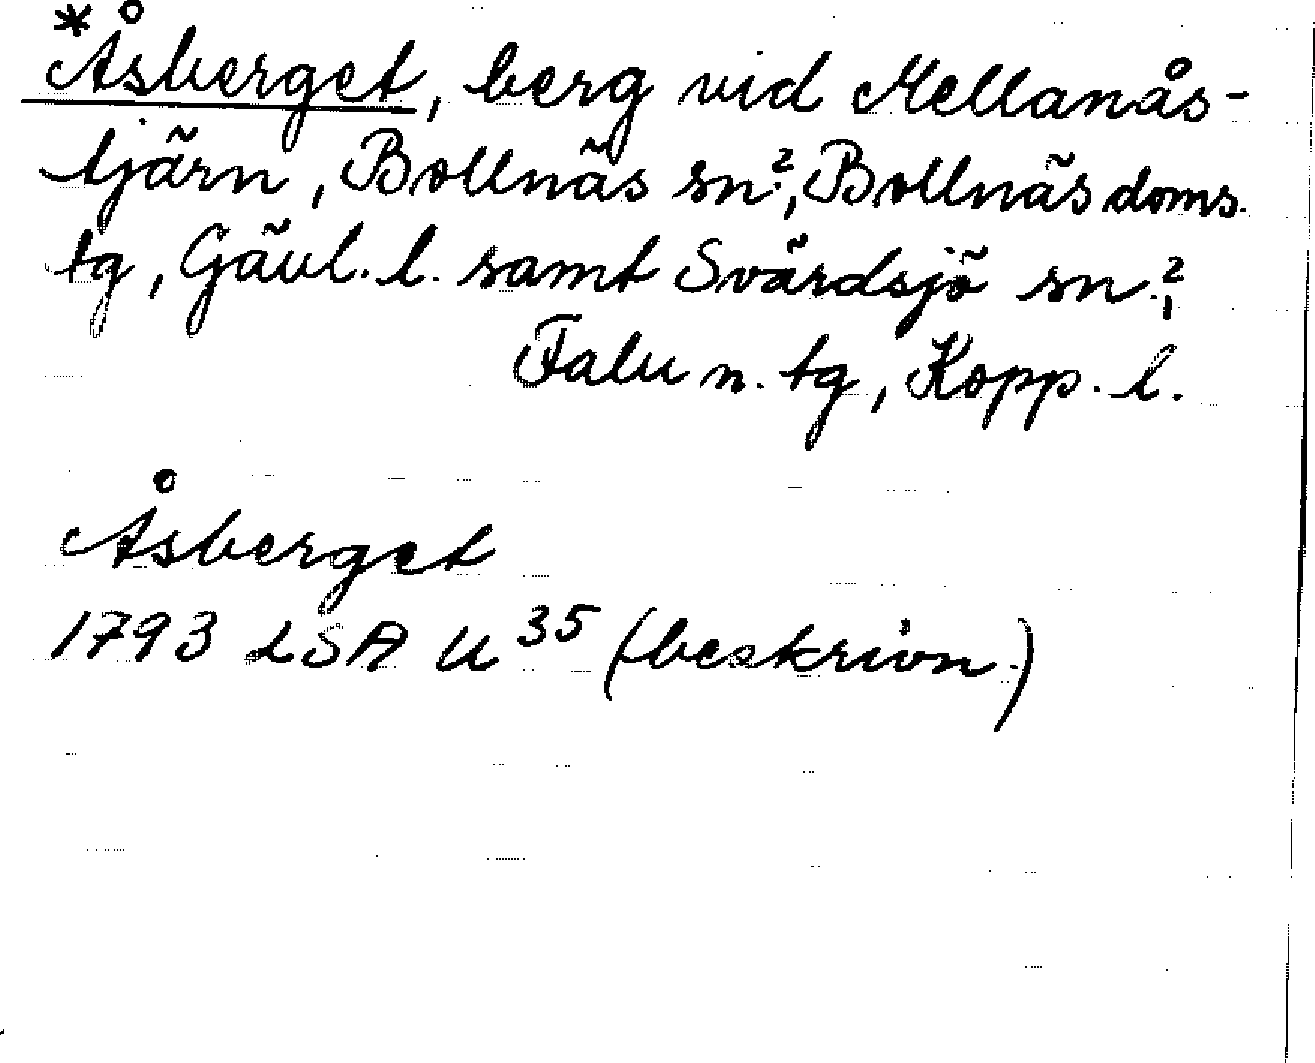 *Åsberget, berg vid Mellanås-
tjärn, Bollnäs sn?, Bollnäs doms.
tg, Gävl. l. samt Svärdsjö sn?,
Falu n. tg, Kopp. l.
Åsberget
1793 LSA U 35 (beskrivn.)